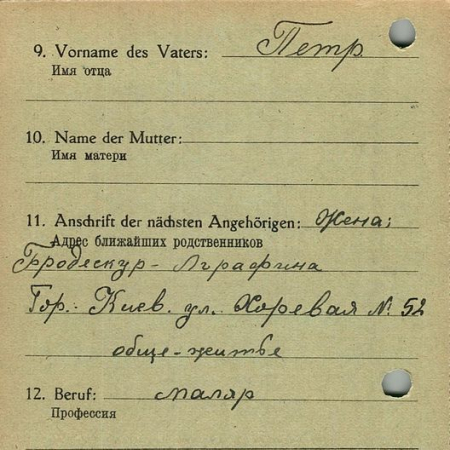 9. Vorname des Vaters: Петр
Имя отца
10. Name der Mutter:
Имя матери
11. Anschrift der nächsten Angehörigen: Жена:
Адрес ближайших родственников
Бродескур - Аграфина
Гор. Киев. ул. Хоревая № 52
обще-житье
12. Beruf: маляр
Профессия